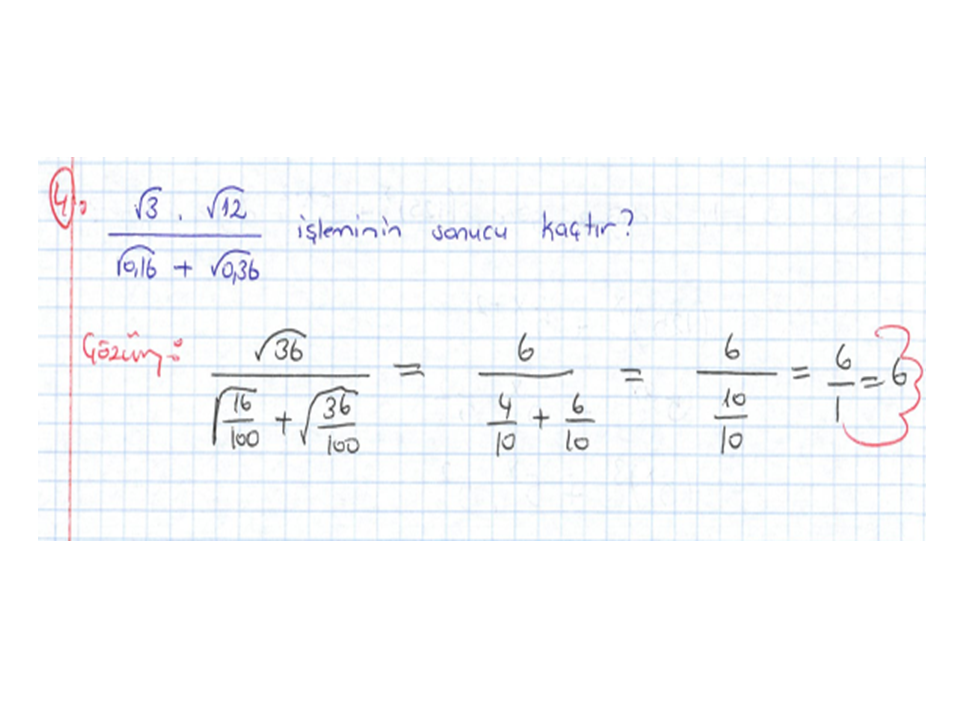 4. (√3 . √12) / (√0,16 + √0,36) işleminin sonucu kaçtır?
Çözüm: √36 / (√(16/100) + √(36/100)) = 6 / (4/10 + 6/10) = 6 / (10/10) = 6/1 = 6